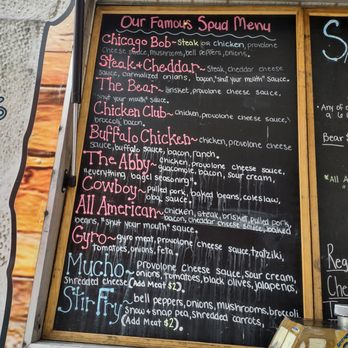 Our Famous Spud Menu
Chicago Bob~ steak or chicken, provolone
cheese sauce, mushrooms, bell peppers, onions.
Steak & Cheddar~ steak, cheddar cheese
sauce, carmalized onions, bacon, "shut your mouth" sauce.
The Bear~ brisket, provolone cheese sauce,
"shut your mouth" sauce.
Chicken Club~ chicken, provolone cheese sauce,
broccoli, bacon.
Buffalo Chicken~ chicken, provolone cheese
sauce, buffalo sauce, bacon, ranch.
The Abby~ chicken, provolone cheese sauce,
guacamole, bacon, sour cream,
"everything bagel seasoning".
Cowboy~ pulled pork, baked beans, coleslaw,
bbq sauce.
All American~ chicken, steak, brisket, pulled pork,
bacon, cheddar cheese sauce, baked
beans, "shut your mouth" sauce.
Gyro~ gyro meat, provolone cheese sauce, tzatziki,
tomatoes, onions, feta.
Mucho~ provolone cheese sauce, sour cream,
onions, tomatoes, black olives, jalapenos,
shredded cheese (Add Meat $2).
Stir Fry~ bell peppers, onions, mushrooms, broccoli
snow & snap pea, shredded carrots,
(Add Meat $2).
S
Any of
Bear
All
Reg
Che